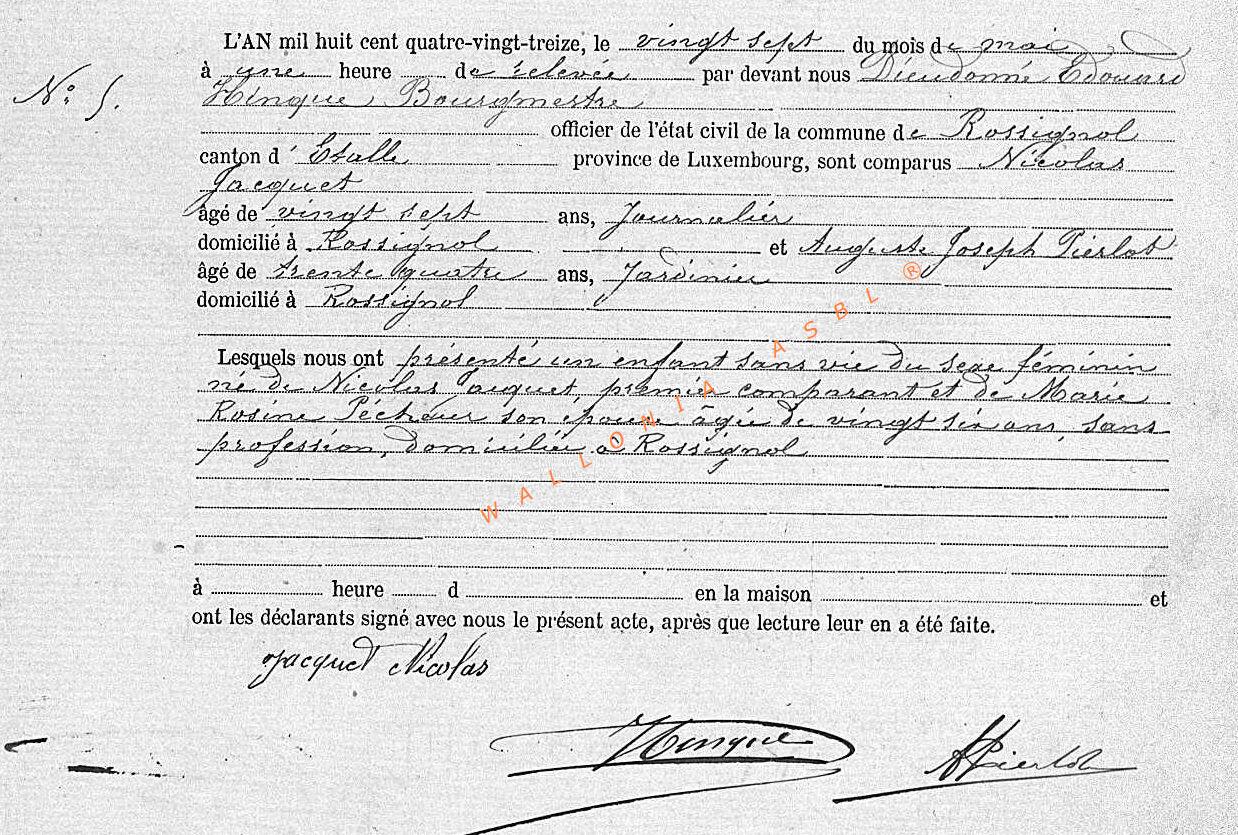 L'AN mil huit cent quatre-vingt-treize, le vingt sept du mois de mai
à une heure de relevée par devant nous Dieudonné Edouard
N° 5.
Hinque, Bourgmestre
officier de l'état civil de la commune de Rossignol
canton d'Etalle province de Luxembourg, sont comparus Nicolas
Jacquet
âgé de vingt sept ans, Journalier
domicilié à Rossignol et Auguste Joseph Pierlot
âgé de trente quatre ans, Jardinier
domicilié à Rossignol
Lesquels nous ont présenté un enfant sans vie du sexe féminin
né de Nicolas Jacquet, premier comparant et de Marie
Rosine Pécheur son épouse âgée de vingt six ans, sans
profession, domiciliée à Rossignol
WALLONIA ASBL ®
à heure d en la maison et
ont les déclarants signé avec nous le présent acte, après que lecture leur en a été faite.
Jacquet Nicolas
Hinque
A Pierlot